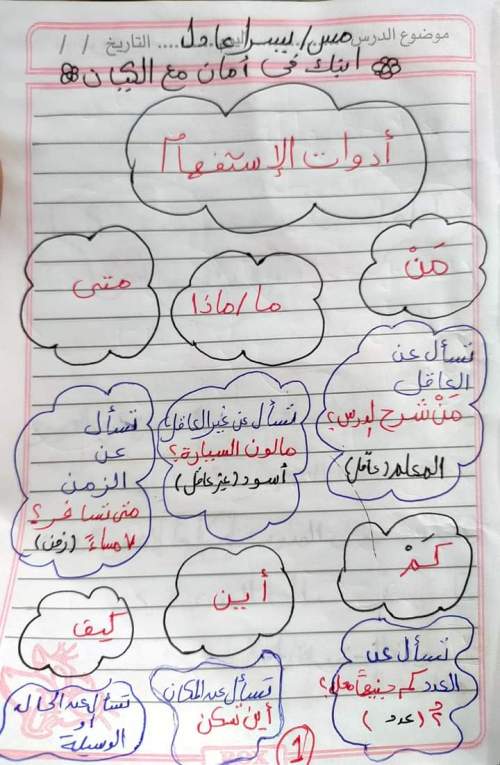 موضوع الدرس مس/يسرا عادل .... التاريخ / /
ابنك في أمان مع الكيان
أدوات الإستفهام
مَنْ
ما/ماذا
متى
تسأل عن
العاقل
مَنْ شرح الدرس؟
المعلم (عاقل)
تسأل عن غير العاقل
ما لون السيارة؟
أسود (غير عاقل)
تسأل
عن
الزمن
متى تسافر؟
٧ مساءً (زمن)
كَمْ
أين
كيف
تسأل عن
العدد كم جنيهاً معك؟
(عدد)
تسأل عن المكان
أين تسكن
تسأل عن الحال
أو
الوسيلة
1